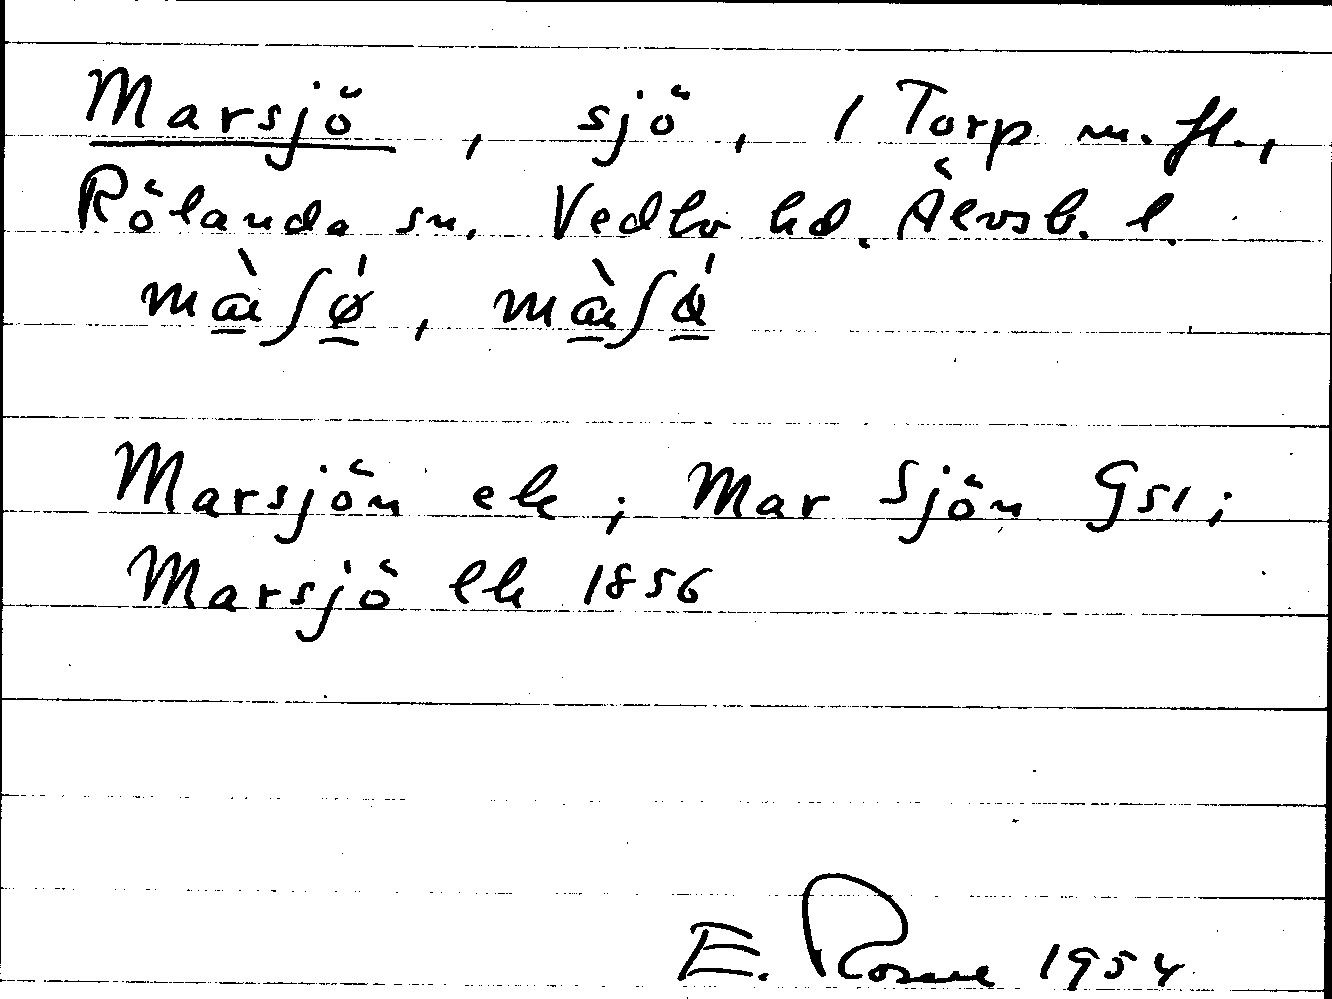 Marsjö, sjö, 1 Torp m. fl.,
Rölanda sn. Vedbo hd. Älvsb. l.
màʃø̍, màʃǿ
Marsjön ek; Mar Sjön Gs1;
Marsjö lk 1856
E. Rosme 1954